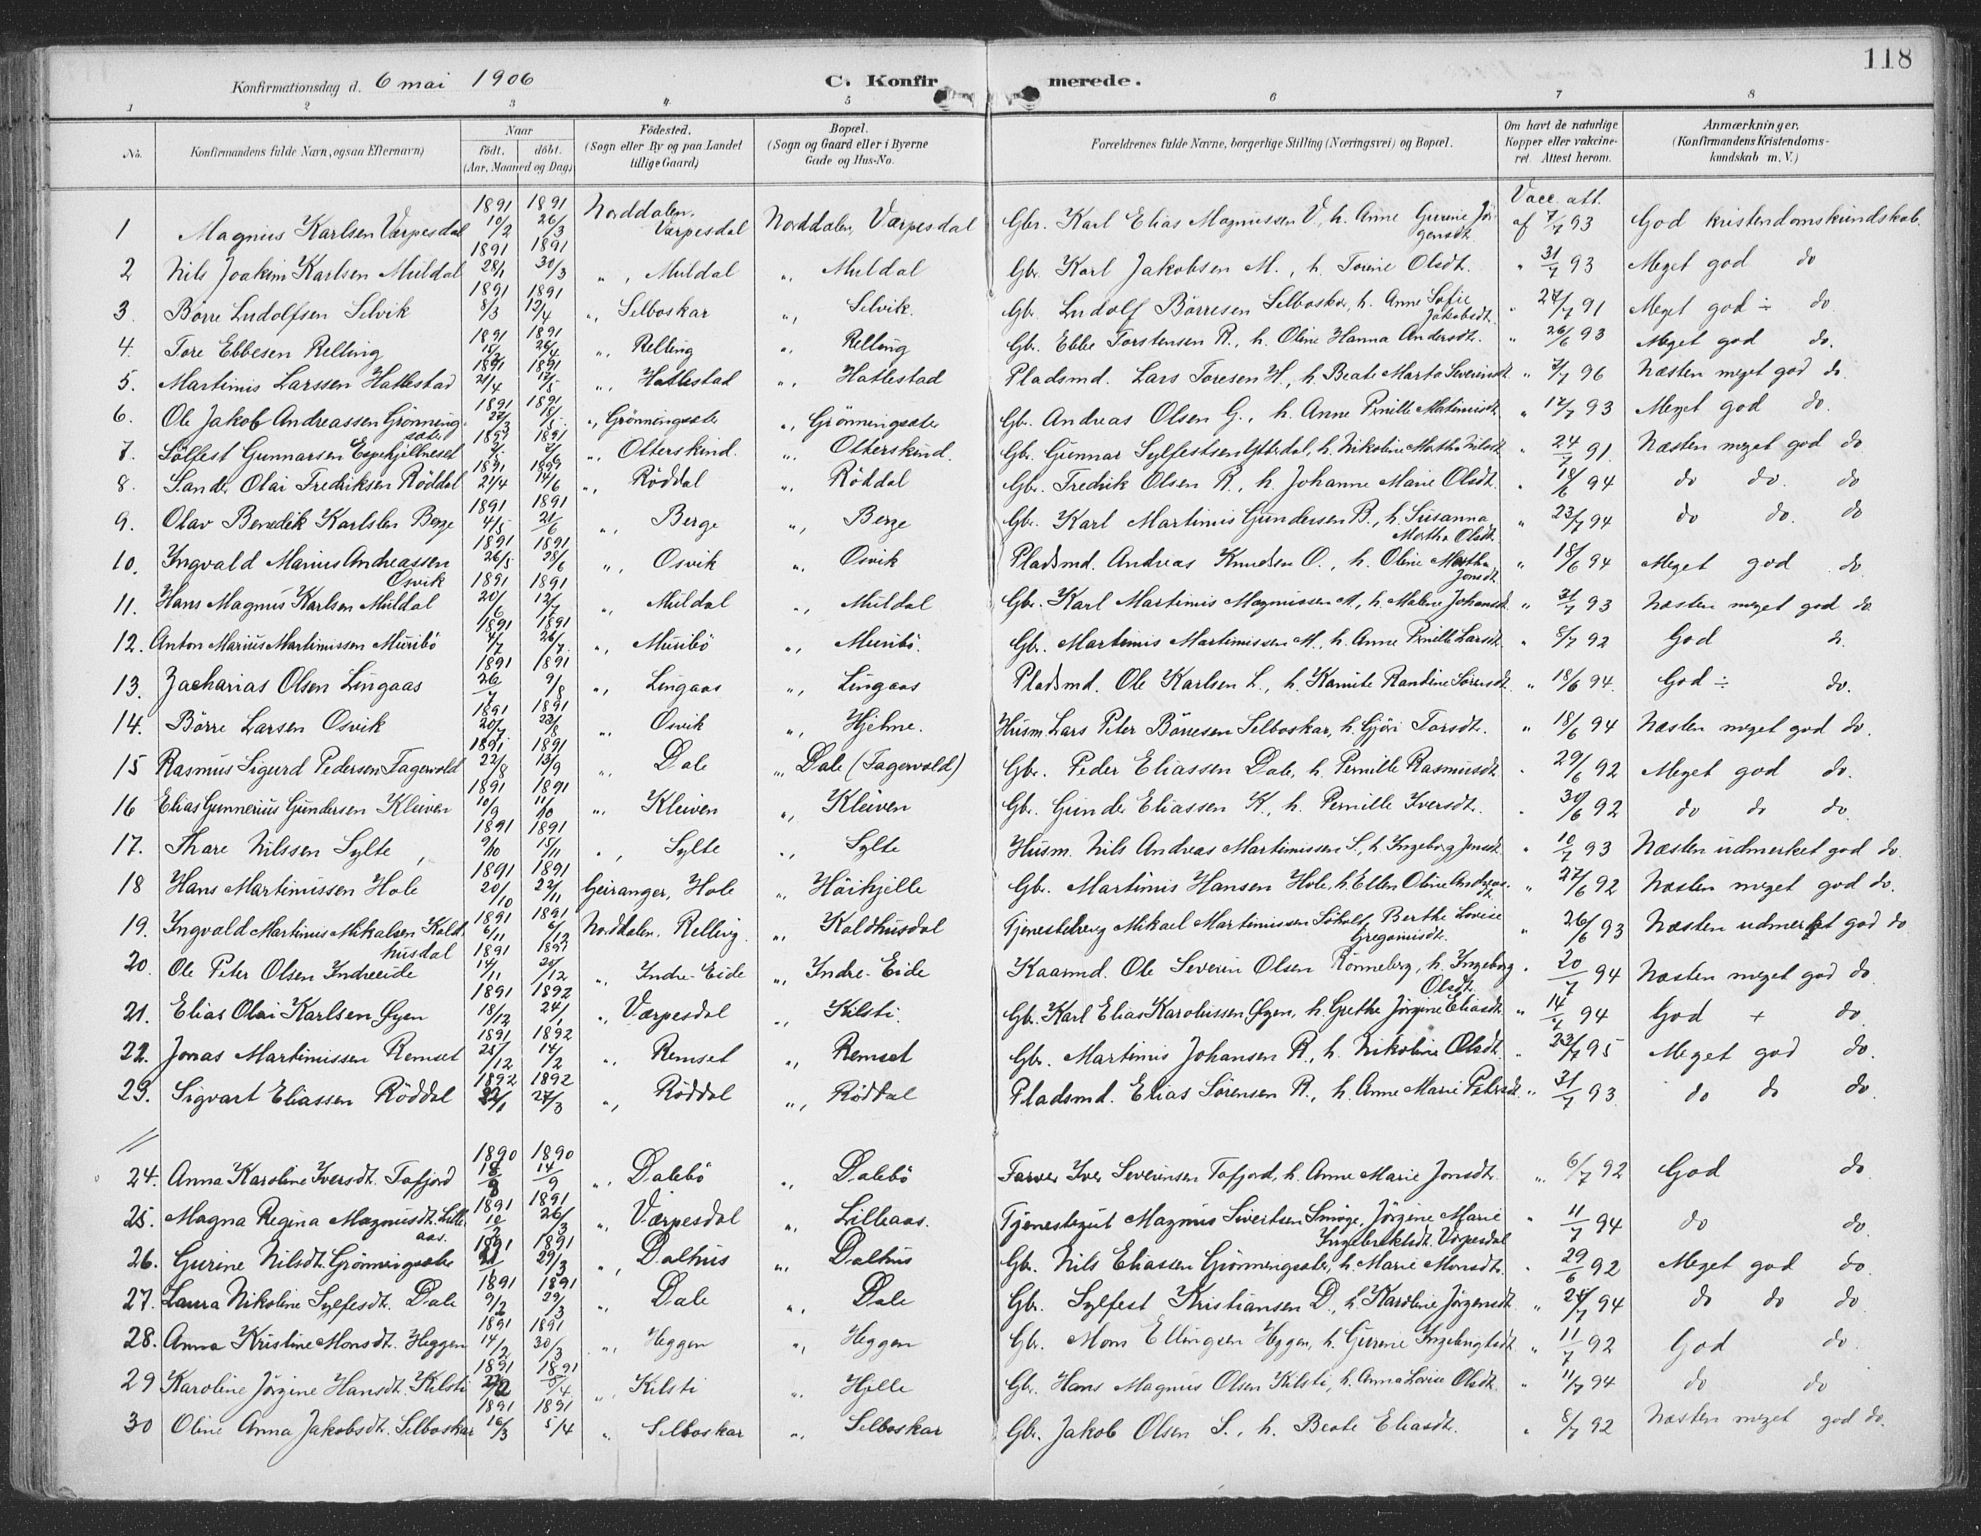 118
Konfirmationsdag d. 6 mai 1906 C. Konfir merede.
1 2 3 4 5 6 7 8
No. Konfirmandens fulde Navn, ogsaa Efternavn) Naar födt. döbt. (Aar, Maaned og Dag) Födested. (Sogn eller By og paa Landet tillige Gaard) Bopæl. (Sogn og Gaard eller i Byerne Gade og Hus-No. Forældrenes fulde Navne, borgerlige Stilling (Næringsvei) og Bopæl. Om havt de naturlige Kopper eller vakcineret. Attest herom. Anmærkninger, (Konfirmandens Kristendomskundskab m. V.)
1 Magnus Karlsen Værpesdal 1891 10/2 1891 26/3 Norddalen, Værpesdal Norddalen, Værpesdal Gbr. Karl Elias Magnussen V., h. Anne Gurine Jörgensdt. Vacc. att. af 7/7 93 God kristendomskundskab.
2 Nils Joakim Karlsen Muldal 1891 28/1 1891 30/3 " , Muldal ", Muldal Gbr. Karl Jakobsen M., h. Torine Olsdt. " 31/7 93 Meget god do
3. Börre Ludolfsen Selvik 1891 8/3 1891 12/4 ", Selboskar ", Selvik. Gbr. Ludolf Börresen Selboskar, h. Anne Sofie Jakobsdt. " 27/7 91 Meget god ÷ do
4. Tore Ebbesen Relling 1891 15/2 1891 26/4 ", Relling ", Relling Gbr. Ebbe Torstensen R., h. Oline Hanna Andersdt. " 26/6 93 Meget god do.
5. Martinus Larssen Hatlestad 1891 21/4 1891 17/5 ", Hatlestad ", Hatlestad Pladsmd. Lars Toresen H., h. Beate Marta Severinsdt " 7/7 96 Næsten meget god do.
6. Ole Jakob Andreassen Grönningsæter 1891 27/3 1891 18/5 ", Grönningsæter ", Grönningsæter Gbr. Andreas Olsen G., h. Anne Pernille Martinusdt. " 17/7 93 Meget god do.
7. Sölfest Gunnarsen Espehjellneset 1891 1891 7/6 ", Otterskind. ", Otterskind. Gbr. Gunnar Sylfestsen Ytterdal, h. Nikoline Martha Nilsdt " 24/7 91. Næsten meget god do
8. Sander Olai Fredriksen Röddal 1891 21/4 14/6 ", Röddal ", Röddal Gbr. Fredrik Olsen R., h. Johanne Marie Olsdt. " 18/6 94 do do. do
9. Olav Benedik Karlsen Berge 1891 4/5 1891 21/6 ", Berge ", Berge Gbr. Karl Martinus Gundersen B., h. Susanna Martha Olsdt. " 23/7 94 do do. do
10. Ingvald Marius Andreassen Osvik 1891 26/5 1891 28/6 ", Osvik ", Osvik Pladsmd. Andreas Knudsen O., h. Oline Martha Jonsdt. " 18/6 94 Meget god do
11. Hans Magnus Karlsen Muldal 1891 20/6 1891 12/7 ", Muldal ", Muldal Gbr. Karl Martinus Magnussen M., h. Malene Johansdt. " 31/7 93 Næsten meget god do.
12. Anton Marius Martinussen Muribö 1891 4/7 1891 26/7. ", Muribö ", Muribö. Gbr. Martinus Martinussen M., h. Anne Pernille Larsdt. " 8/7 92 God do.
13. Zacharias Olsen Lingaas 1891 26/7 1891 9/8 ", Lingaas ", Lingaas Pladsmd. Ole Karlsen L., h. Kamite Randine Sörensdt " 18/6 94. God ÷ do.
14. Börre Larsen Osvik 1891 20/7. 1891 23/8 ", Osvik ", Hjelme. Husm. Lars Peter Börresen Selboskar, h. Gjöri Torsdt. " 18/6 94 Næsten meget god do.
15 Rasmus Sigurd Pedersen Fagervold 1891 22/8 1891 13/9 ", Dale ", Dale (Fagervold) Gbr. Peder Eliassen Dale, h. Pernille Rasmusdt " 29/6 92 Meget god do.
16 Elias Gunnerius Gundersen Kleiven 1891 10/9 1891 11/10 ", Kleiven ", Kleiven Gbr. Gunder Eliassen K., h. Pernille Iversdt. " 30/6 92 do do do
17. Thare Nilssen Sylte 1891 9/10 1891 15/11 ", Sylte ", Sylte Husm. Nils Andreas Martinussen S., h. Ingeborg Jonsdt. " 10/7 93 Næsten udmerket god do.
18 Hans Martinussen Hole 1891 20/10 1891 22/11 Geiranger, Hole ", Höikjelle Gbr. Martinus Hansen Hole, h. Ellen Oline Andreasdt. " 27/6 92 Næsten meget god do.
19. Ingvald Martinus Mikalsen Kaldhusdal 1891 6/11 1891 6/12 Norddalen, Relling. ", Kaldhusdal Tjenestedreng Mikael Martinussen Söholt, Berthe Lovise Gregoriusdt. " 26/6 93 Næsten udmerket god do
20. Ole Peter Olsen Indreeide 1891 14/11 1891 20/12 ", Indre-Eide ", Indre-Eide Kaarmd. Ole Severin Olsen Rönneberg, h. Ingeborg Olsdt. " 20/7 94 Næsten meget god do
21. Elias Olai Karlsen Øyen 1891 18/12 1892 24/1 ", Værpesdal ", Kilsti. Gbr. Karl Elias Karolussen Øyen, h. Grethe Jörgine Eliasdt " 14/7 94 God + do.
22. Jonas Martinussen Remset 1891 25/12 1892 14/2 ", Remset ", Remset Gbr. Martinus Johansen R., h. Nikoline Olsdt. " 22/7 95 Meget god do.
23. Sigvart Eliassen Röddal 1892 1892 27/3 ", Röddal ", Röddal Pladsmd. Elias Sörensen R., h. Anne Marie Petersdt. " 31/7 93 do do do.
24. Anna Karoline Iversdt. Tafjord 1890 18/8 1890 14/9 ", Dalebö ", Dalebö Farver Iver Severinsen Tafjord, h. Anne Marie Jonsdt. " 6/7 92 God do
25. Magna Regina Magnusdt. Lilleaas. 1891 10/2 1891 26/3 ", Værpesdal ", Lilleaas. Tjenestegut Magnus Sivertsen Smöge, Jörgine Marie Ingebrektsdt. Værpesdal " 11/7 94 do do.
26. Gurine Nilsdt. Grönningsæter 1891 1891 29/3 ", Dalhus ", Dalhus Gbr. Nils Eliassen Grönningsæter, h. Marie Monsdt. " 29/6 92 Meget god do.
27. Laura Nikoline Sylfesdt. Dale 1891 9/2 1891 29/3 ", Dale ", Dale Gbr. Sylfest Kristiansen D., h. Karoline Jörgensdt " 24/7 94 do do do
28. Anna Kristine Monsdt. Heggen 1891 14/2 1891 30/3 ", Heggen ", Heggen Gbr. Mons Ellingsen Heggen, h. Gurine " 11/7 92 God do.
29 Karoline Jörgine Hansdt. Kilsti 1891 1891 5/4 ", Kilsti ", Hjelle Gbr. Hans Magnus Olsen Kilsti, h. Anna Lovise Olsdt. " 11/7 94 do do
30 Oline Anna Jakobsdt. Selboskar 1891 16/3 1891 5/4 ", Selboskar ", Selboskar Gbr. Jakob Olsen S., h. Beate Eliasdt. " 8/7 92 Næsten meget god do.